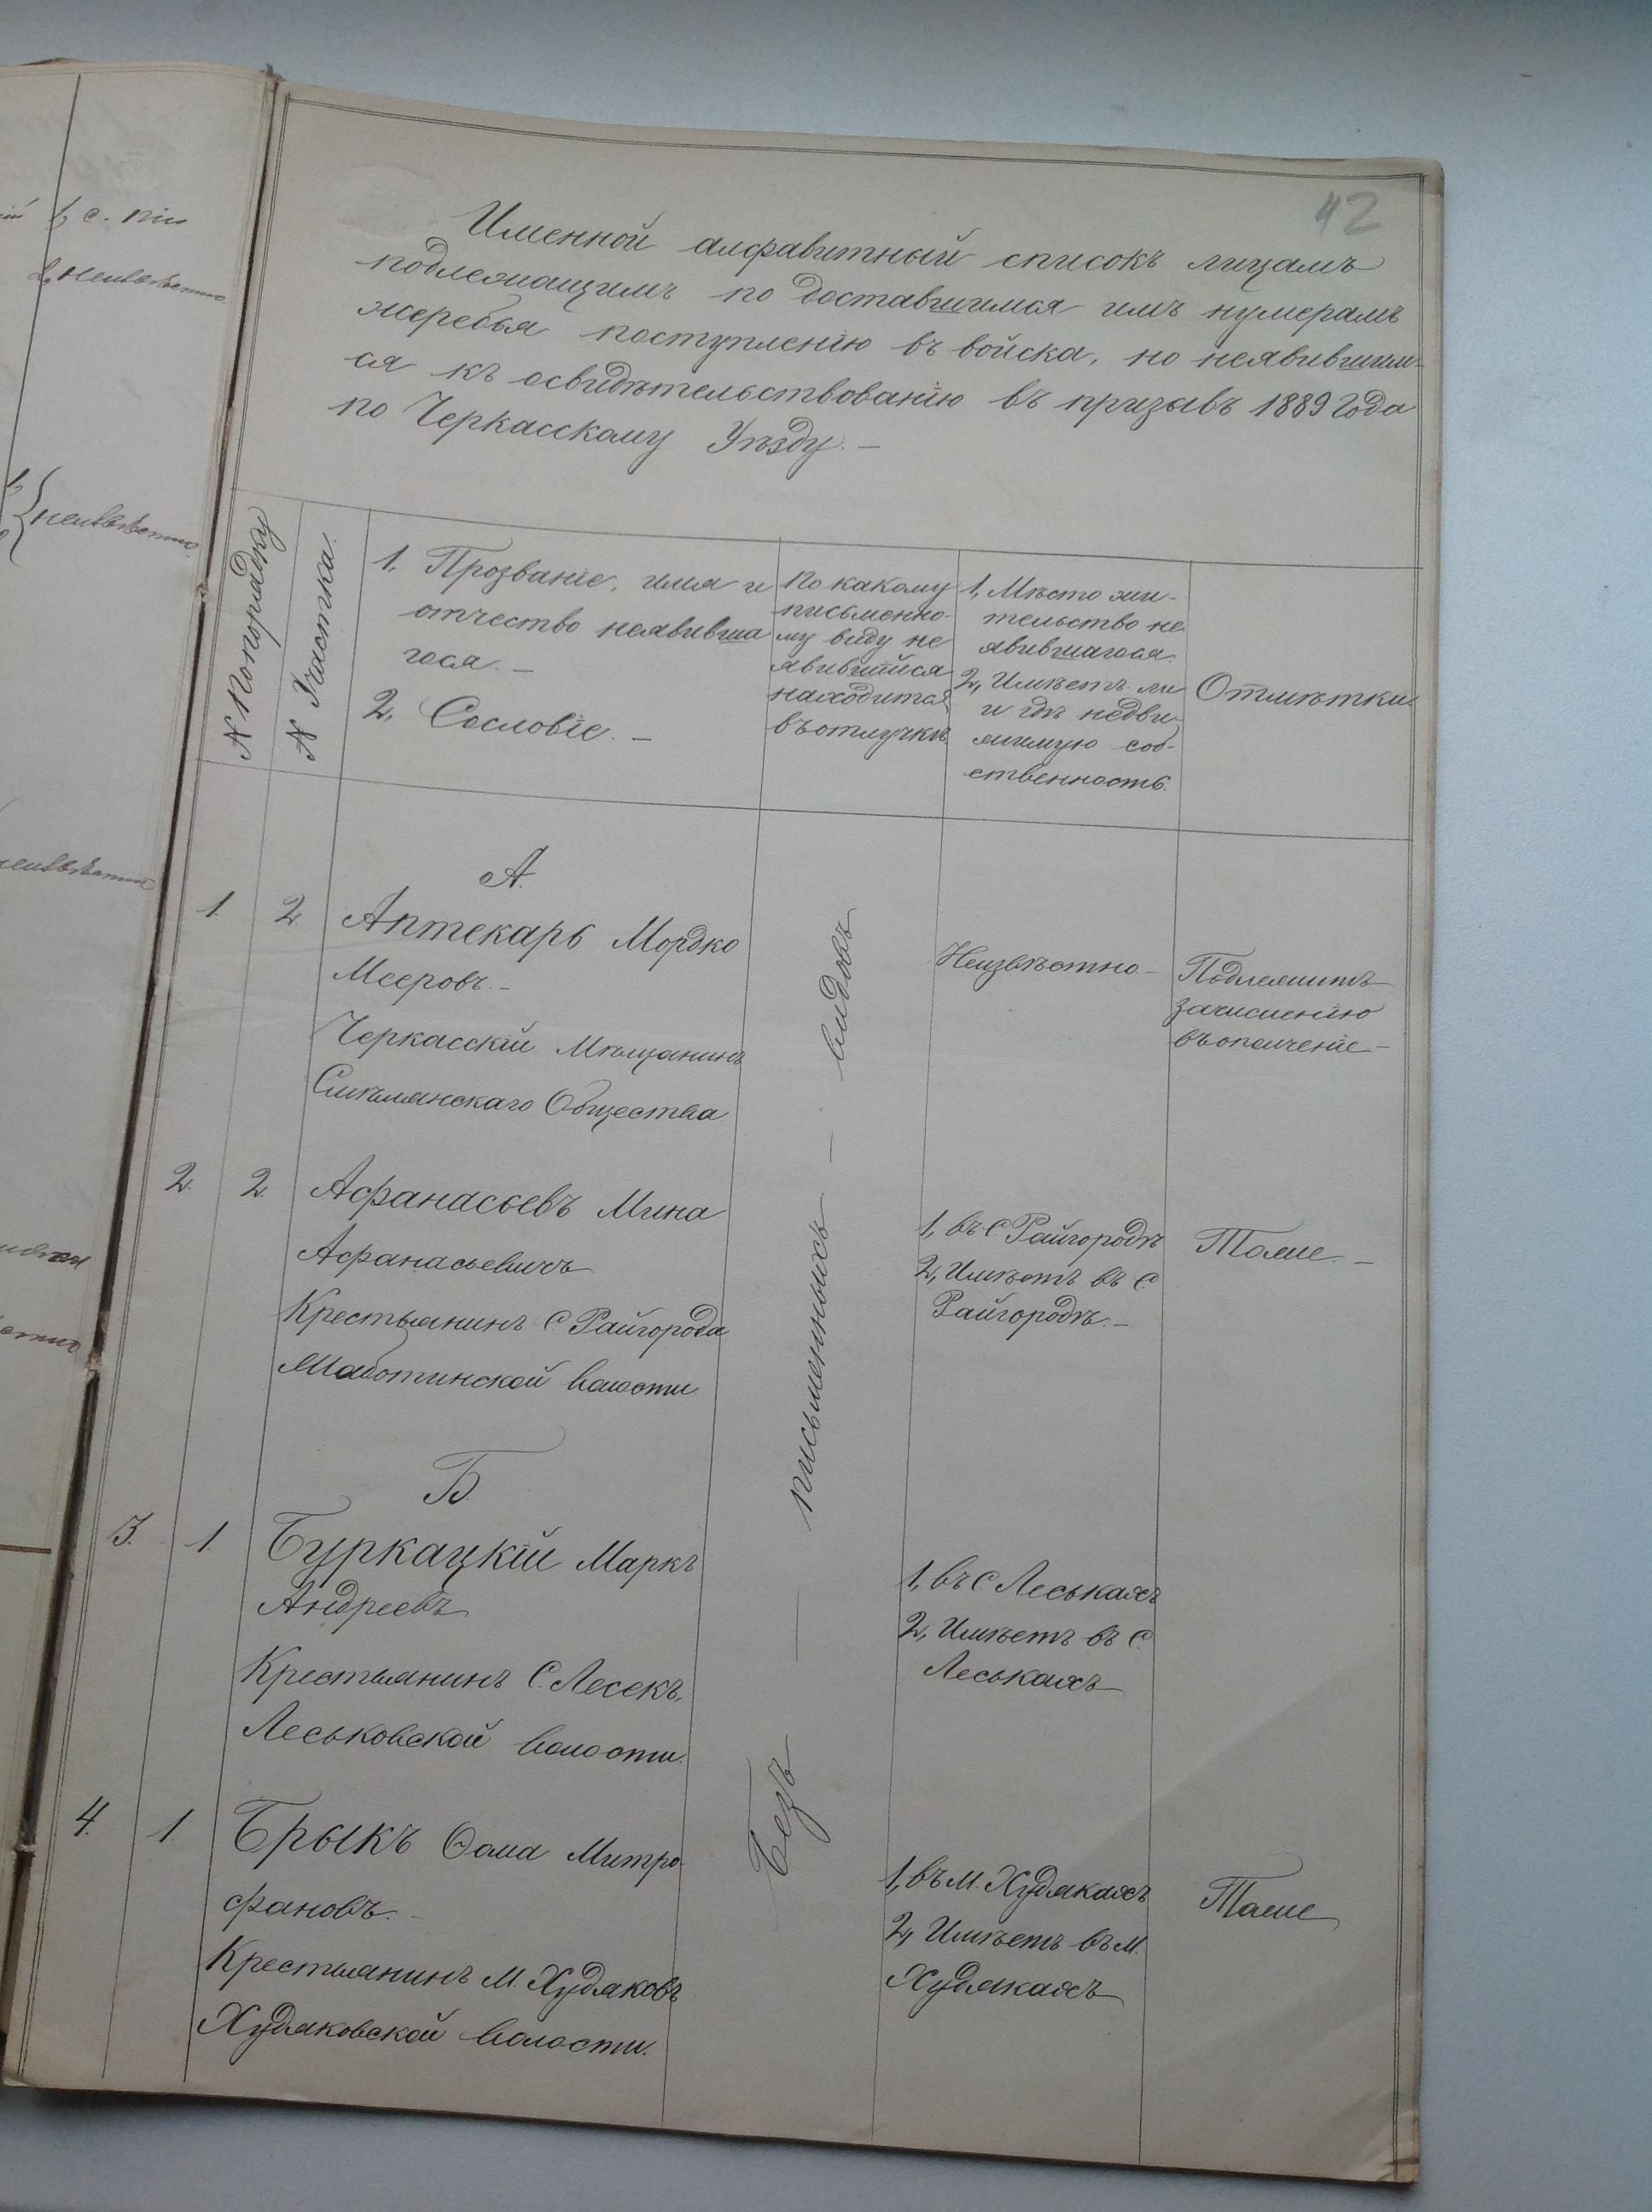 42
Именной алфавитный списокъ лицамъ
подлежащимъ по доставшимся имъ нумерамъ
жеребья поступленію въ войска, но неявившим-
ся къ освидѣтельствованію въ призывъ 1889 года
по Черкасскому Уѣзду. —
№ По порядку
№ Участка.
1, Прозваніе, имя и
отчество неявивша
гося. —
2, Сословіе. —
По какому
письменно-
му виду не
явившійся
находится
въ отлучкѣ
1, Мѣсто жи-
тельство не
явившагося.
2, Имѣетъ ли
и гдѣ недви-
жимую соб-
ственность.
Отмѣтки.
А.
1. 2. Аптекарь Мордко
Мееровъ. —
Черкасскій Мѣщанинъ
Смѣлянскаго Общества
Неизвѣстно. —
Подлежитъ
зачисленію
въ ополченіе —
2. 2. Афанасьевъ Мина
Афанасьевичъ
Крестьянинъ С. Райгорода
Жаботинской волости.
1, въ С Райгородѣ
2, Имѣетъ въ С.
Райгородѣ. —
Тоже. —
Б.
3. 1. Буркацкій Маркъ
Андреевъ
Крестьянинъ С. Лесекъ,
Леськовской волости.
1, въ С Леськахъ
2, Имѣетъ въ С.
Леськахъ
4. 1. Брыкъ Ѳома Митро-
фановъ. —
Крестьянинъ М. Худяковъ
Худяковской волости.
1, въ М. Худякахъ
2, Имѣетъ въ М.
Худякахъ
Тоже
Безъ — письменныхъ — видовъ
с.
неизвѣстно
неизвѣстно
неизвѣстно